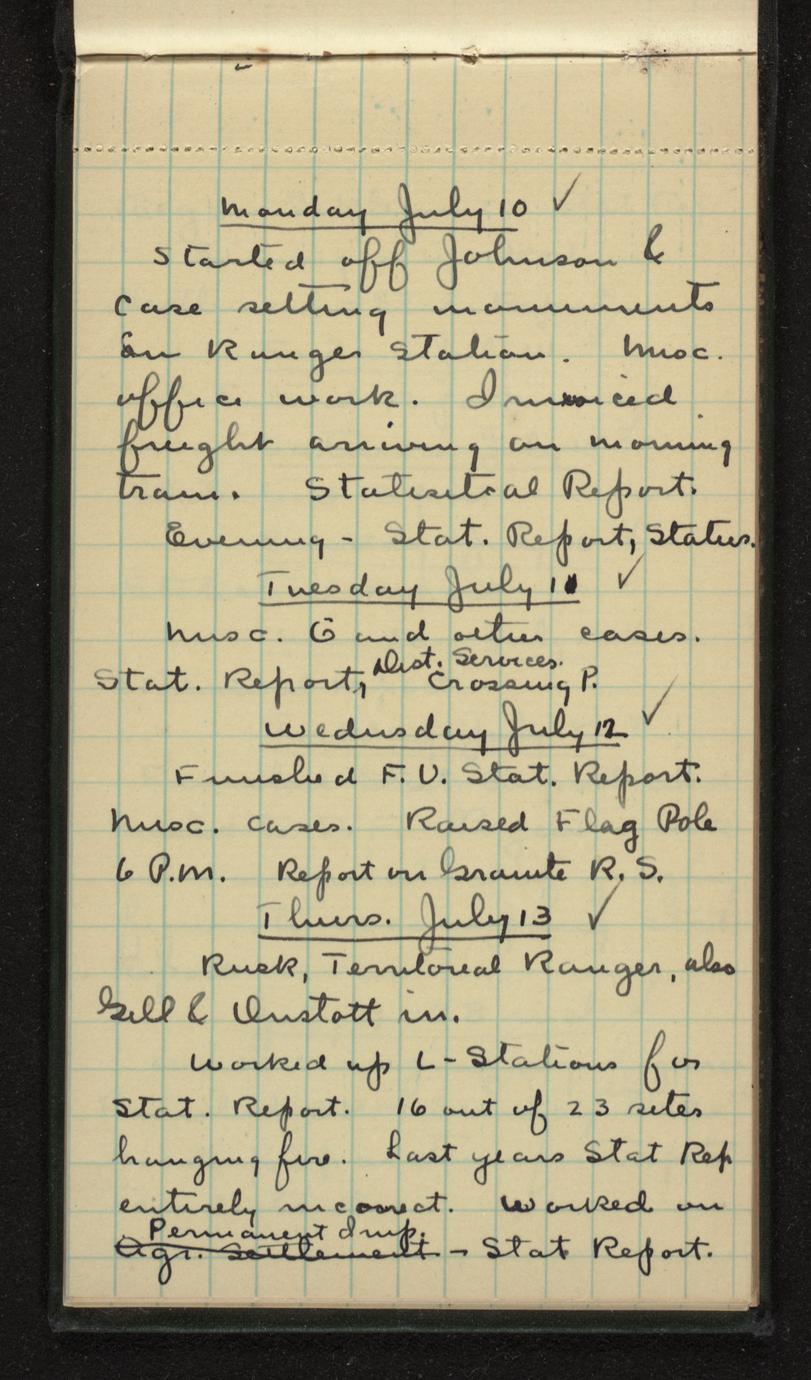 Monday July 10 ✓
Started off Johnson &
Case setting monuments
on Ranger Station. Misc.
office work. Invoiced
freight arriving on morning
train. Statisitcal Report.
Evening - Stat. Report, Status.
Tuesday July 11 ✓
Misc. G and other cases.
Dist. Services.
Stat. Report, Crossing P.
Wednsday July 12 ✓
Finished F.U. Stat. Report.
Misc. cases. Raised Flag Pole
6 P.M. Report on Granite R.S.
Thurs. July 13 ✓
Rusk, Territorial Ranger, also
Gill & Unstott in.
Worked up L-Stations for
Stat. Report. 16 out of 23 sites
hanging fire. Last years Stat Rep
entirely incorrect. Worked on
Permanent Imp.
Agr. Settlement - Stat Report.